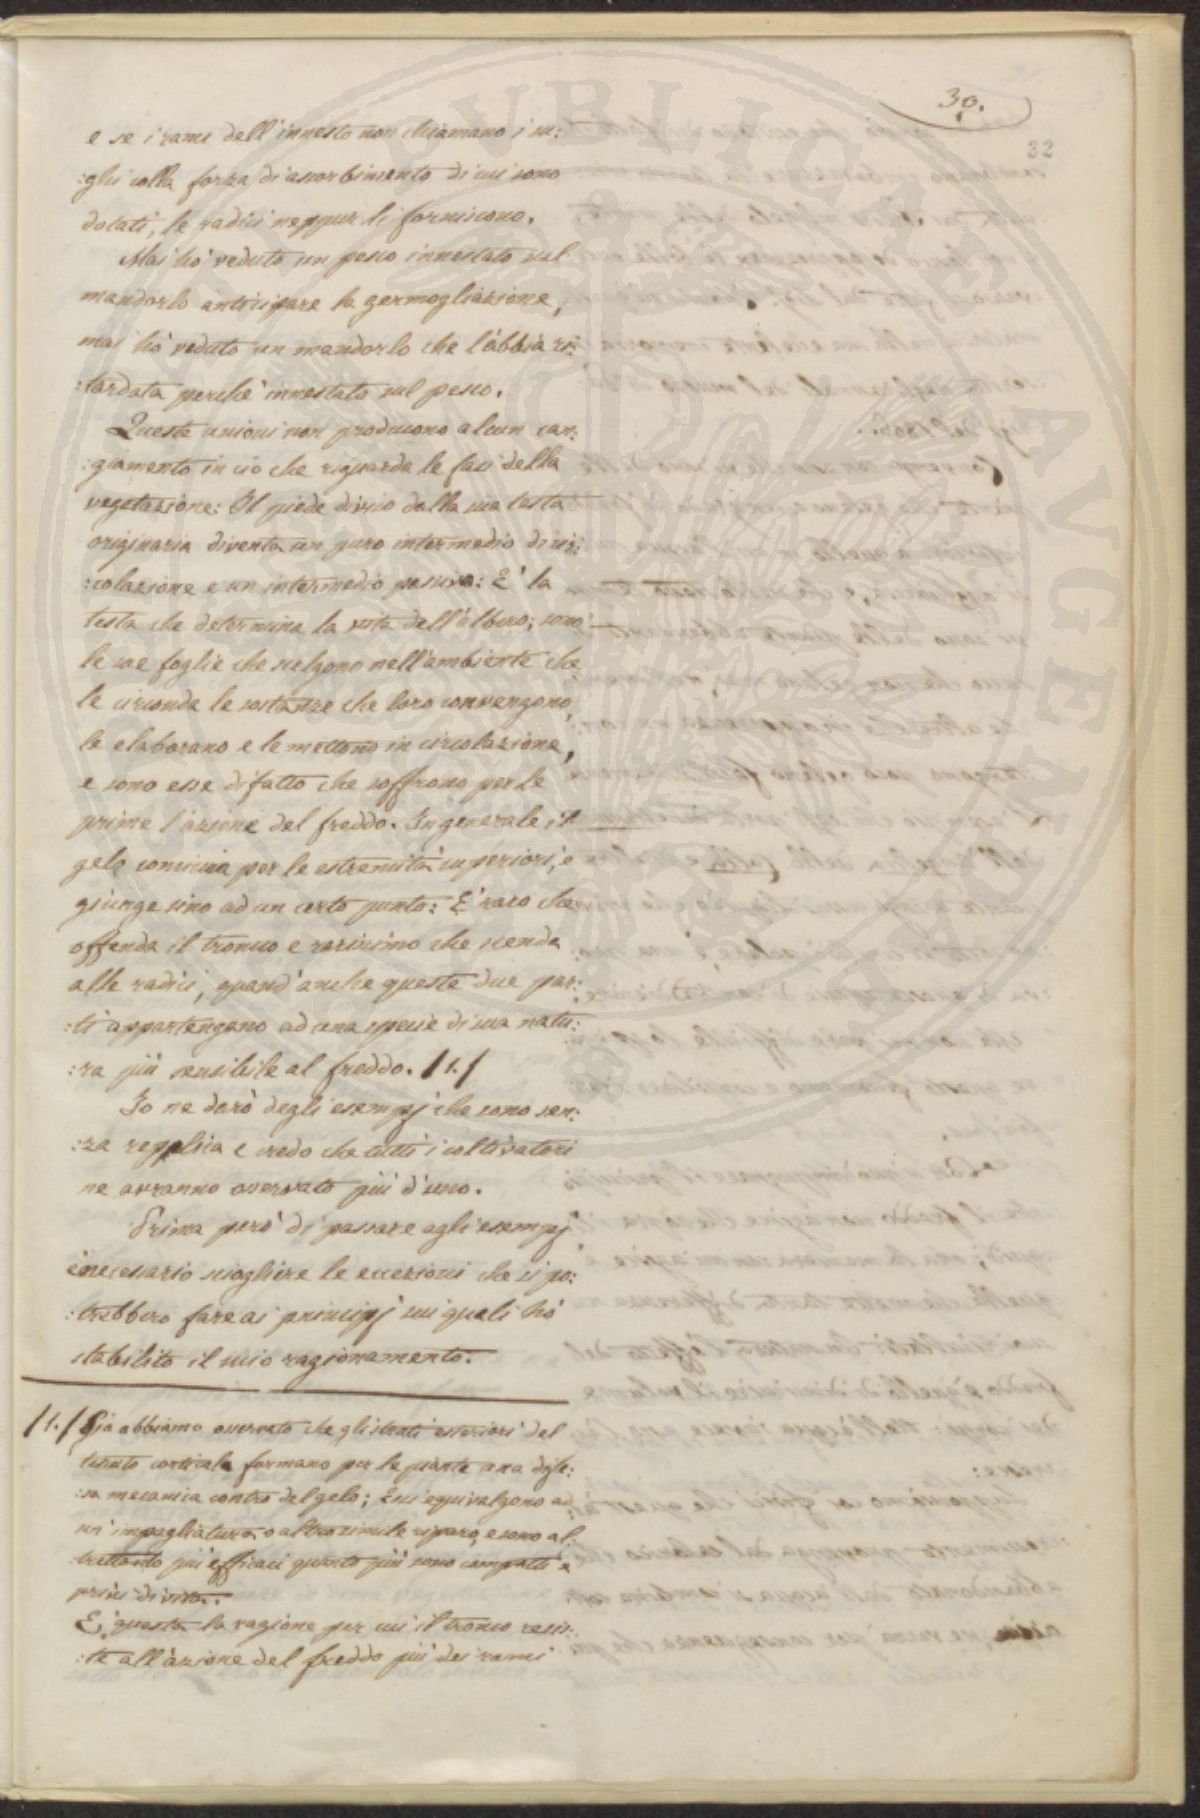 30.
32
e se i rami dell'innesto non chiamano i su:
:ghi colla forza di assorbimento di cui sono
dotati, le radici neppur li forniscono.
Mai hò veduto un pesco innestato sul
mandorlo anticipare la germogliazione,
mai hò veduto un mandorlo che l'abbia ri:
:tardata perchè innestato sul pesco.
Queste unioni non producono alcun can:
:giamento in ciò che riguarda le fasi della
vegetazione: Il piede diviso dalla sua testa
originaria diventa un puro intermedio di cir:
:colazione e un intermedio passivo: E' la
testa che determina la vita dell'albero; sono
le sue foglie che scelgono nell'ambiente che
le circonda le sostanze che loro convengono,
le elaborano e le mettono in circolazione,
e sono esse difatto che soffrono per le
prime l'azione del freddo. In generale il
gelo comincia per le estremità superiori, e
giunge sino ad un certo punto: E' raro che
offenda il tronco e rarissimo che scenda
alle radici, quand'anche queste due par:
:ti appartengano ad una specie di sua natu:
:ra più sensibile al freddo. /1./
Io ne darò degli esempj che sono sen:
:za replica e credo che tutti i coltivatori
ne avranno osservato più d'uno.
Prima però di passare agli esempj
è necessario sciogliere le eccezioni che si po:
:trebbero fare ai principj sui quali hò
stabilito il mio ragionamento.
/1./ Già abbiamo osservato che gli strati esteriori del
tessuto corticale formano per le piante una dife:
:sa mecanica contro del gelo; Essi equivalgono ad
un'impagliatura o altro simile riparo, e sono al:
:trettanto più efficaci quanto più sono compatti e
privi di vita.
E' questa la ragione per cui il tronco resis:
:te all'azione del freddo più dei rami